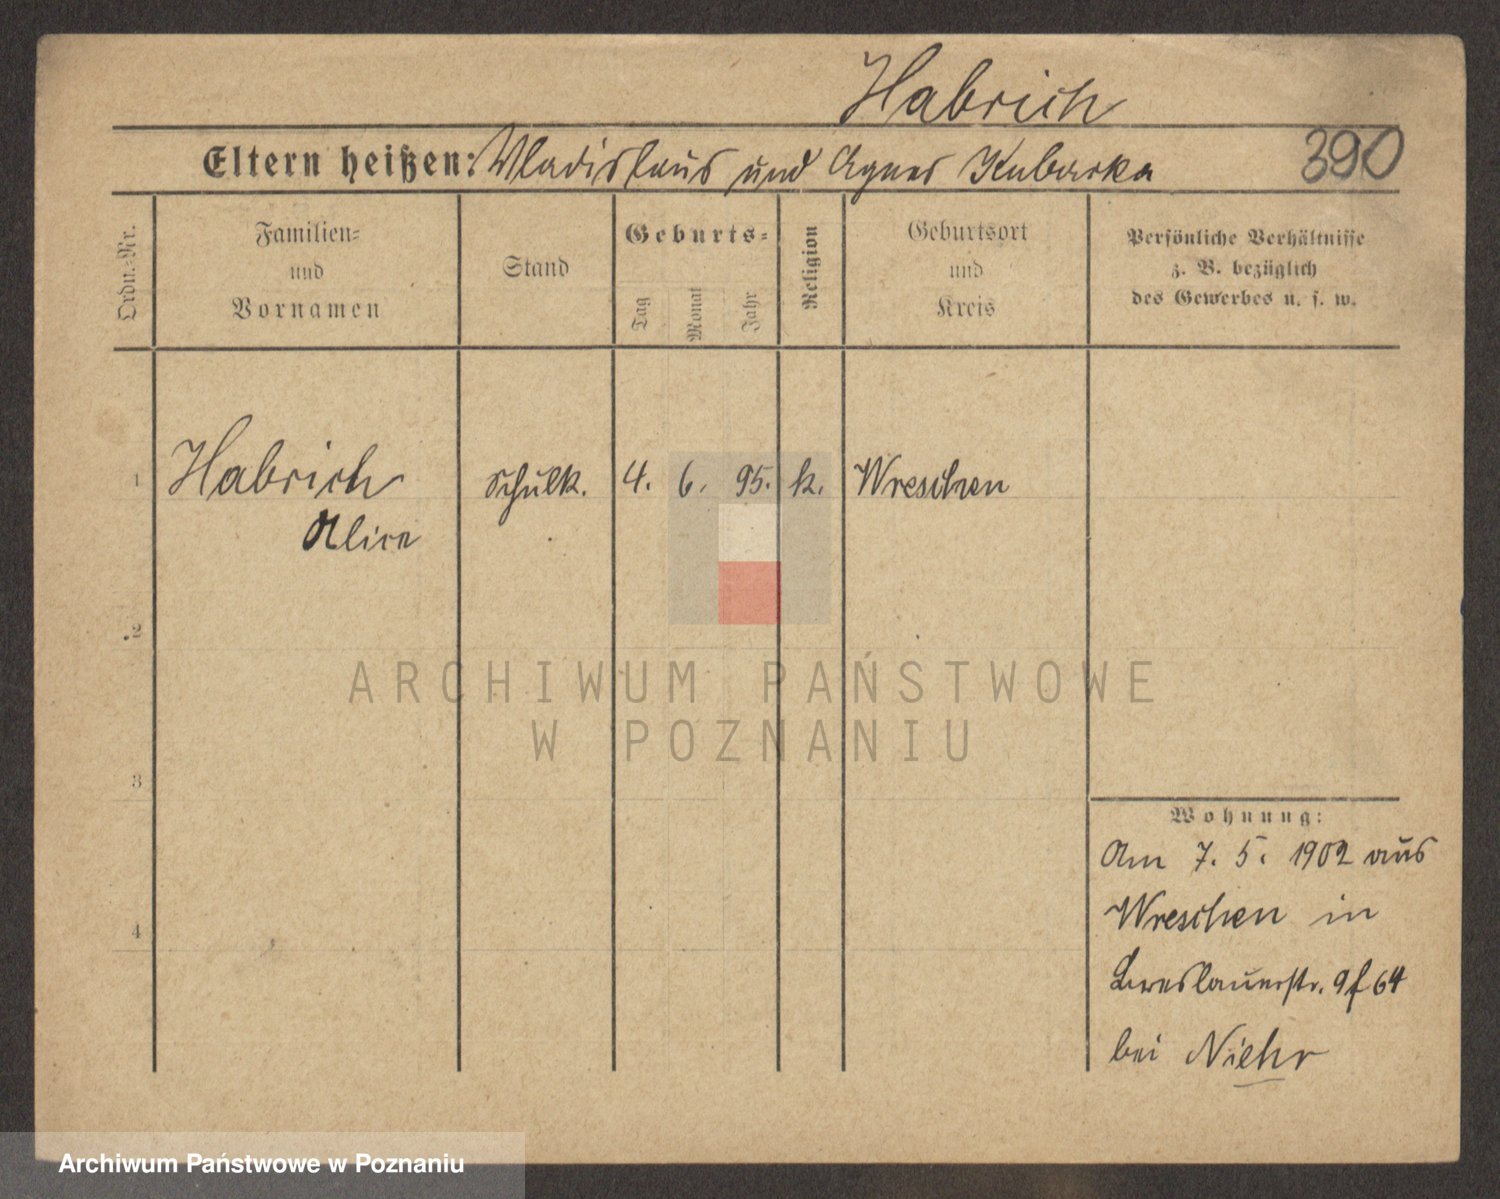 Habrich
Eltern heißen: Wladislaus und Agnes Kubacka
390
Ordn.-Nr.
Familien-
und
Vornamen
Stand
Geburts-
Tag
Monat
Jahr
Religion
Geburtsort
und
Kreis
Persönliche Verhältnisse
z. B. bezüglich
des Gewerbes u. s. w.
1 Habrich Schulk. 4. 6. 95. k. Wreschen
Alice
2
3
4
ARCHIWUM PAŃSTWOWE
W POZNANIU
Wohnung:
Am 7. 5. 1902 aus
Wreschen in
Breslauerstr. 9 f 64
bei Niehr
Archiwum Państwowe w Poznaniu